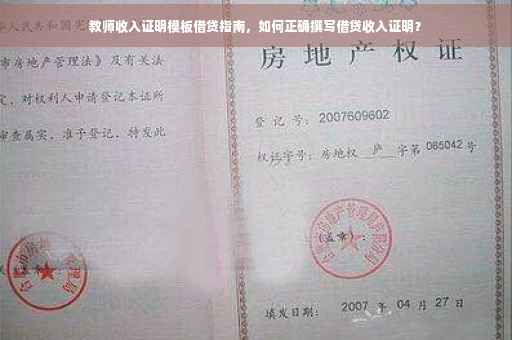 教师收入证明模板借贷指南，如何正确撰写借贷收入证明？
人民共和国宪
市房地产管理法》及有关法
定，对权利人申请登记本证所
审查属实，准予登记，特发此
房地产权证
登记号：2007609602
权证字号：房地权 庐 字第 065042 号
(盖章)：
填发日期： 2007 年 04 月 27 日